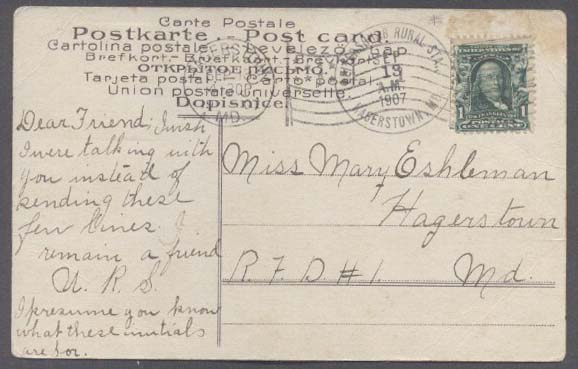 Carte Postale
Postkarte. - Post card.
Cartolina postale. - Levelező-Lap.
Brefkort. - Briefkaart. - Brevkort.
ОТКРЫТОЕ ПИСЬМО.
Tarjeta postal. - Carte postal.
Union postale universelle.
Dopisnice.
MD
RURAL STA.
SEP
19
A.M.
1907
HAGERSTOWN, MD.
1 1
ONE CENT
Dear Friend; I wish
I were talking with
you instead of
sending these
few lines. I
remain a friend
U. R. S.
I presume you know
what these initials
are for.
Miss Mary Eshleman
Hagerstown
R. F. D # 1. Md.